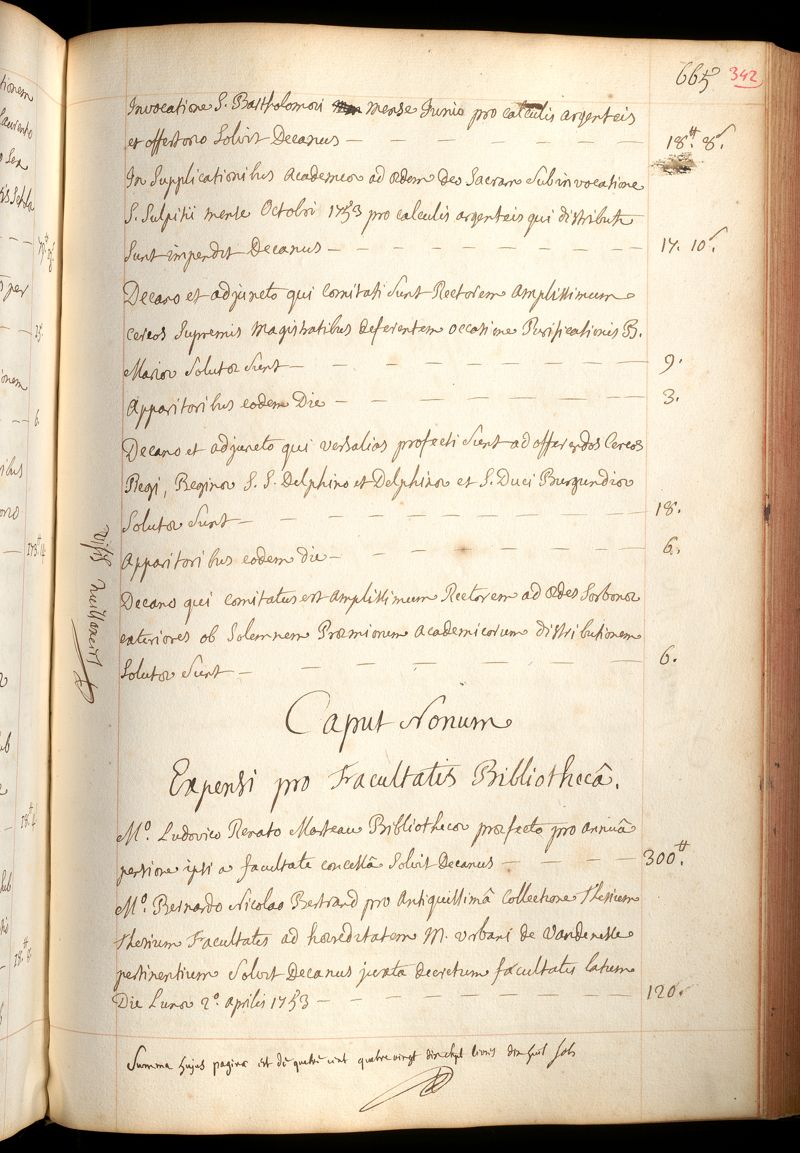 665 342
Invocatione S. Bartholomæi mense Junio pro calculis argenteis
et offertorio Solvit Decanus — 18.tt 8.s
In Supplicationibus Academicæ ad ædem deo Sacram Sub invocatione
S. Sulpitii mense Octobri 1753 pro calculis argenteis qui distributi
Sunt impendit Decanus — 17. 10.s
Decano et adjuncto qui Comitati Sunt Rectorem Amplissimum
Cereos Supremis Magistratibus deferentem occasione Purificationis B.
Mariæ Solutæ Sunt — 9.
Apparitoribus eodem Die — 3.
Decano et adjuncto qui versalias profecti Sunt ad offerendos Cereos
Regi, Reginæ S. S. Delphino et Delphinæ et S. Duci Burgundiæ
Solutæ Sunt — 18.
Apparitoribus eodem die — 6.
Decano qui Comitatus est Amplissimum Rectorem ad ædes Sorbonæ
exteriores ob Solemnem Præmiorum Academicorum distributionem
Solutæ Sunt — 6.
Caput Nonum
Expensi pro Facultatis Bibliothecâ.
Mo. Ludovico Renato Marteau Bibliothecæ præfecto pro annuâ
pensione ipsi a facultate concessâ Solvit Decanus — 300.tt
Mo. Bernardo Nicolao Bertrand pro Antiquissimâ Collectione Thesium
Thesium Facultatis ad hæreditatem M. Urbani de Vandenesse
pertinentium Solvit Decanus juxta decretum facultatis latum
Die Lunæ 2o. aprilis 1753 — 120.
Summa hujus paginæ est de quatre cent quatre vingt dix sept livres dix huit sols